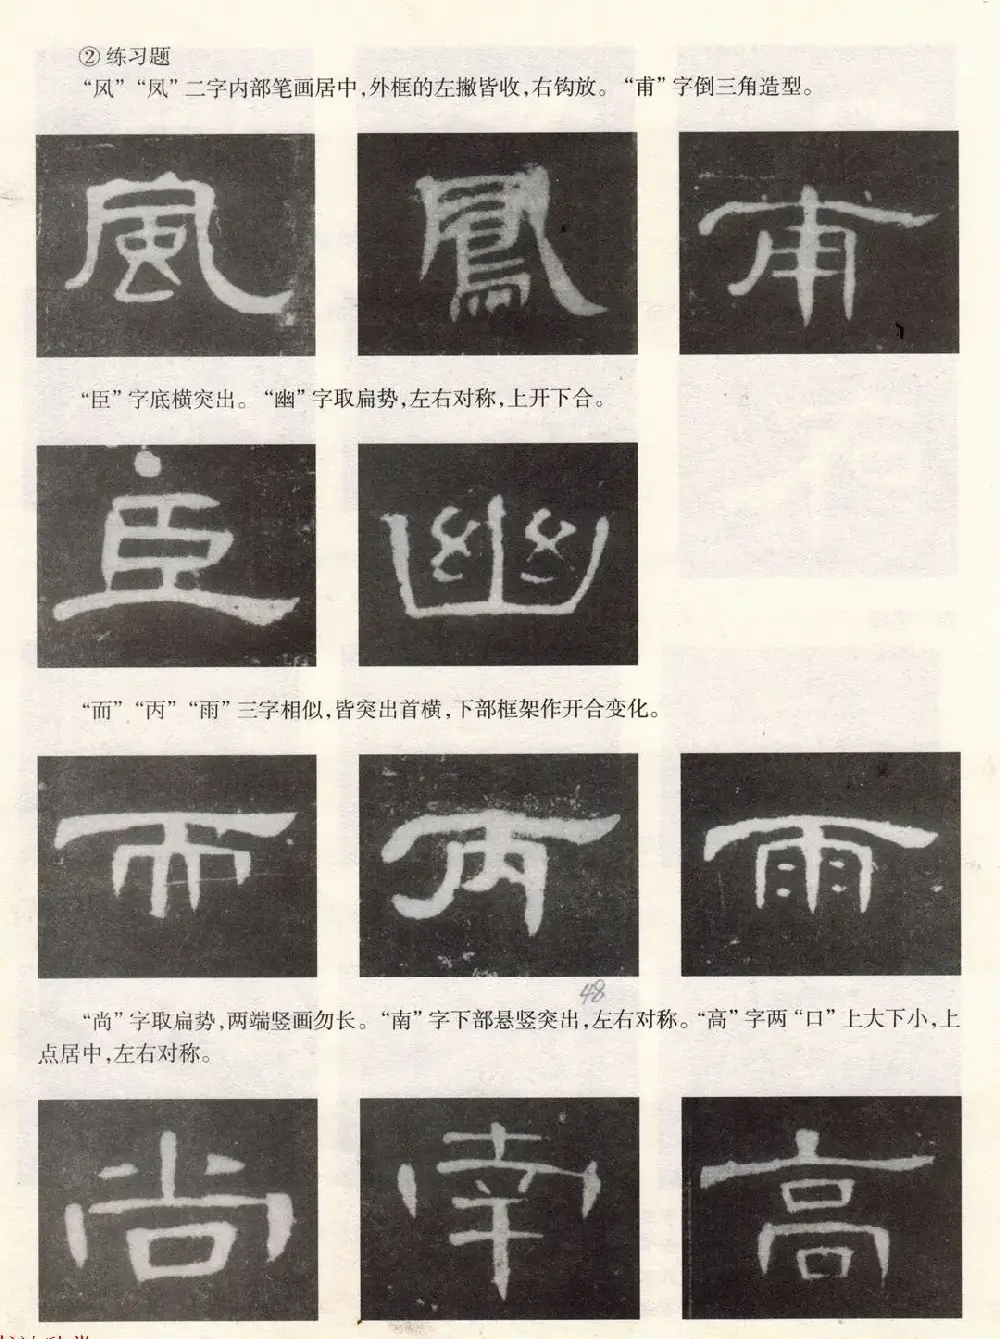 ②练习题
“风”“凤”二字内部笔画居中,外框的左撇皆收,右钩放。“甫”字倒三角造型。
風 鳳 甫
“臣”字底横突出。“幽”字取扁势,左右对称,上开下合。
臣 幽
“而”“丙”“雨”三字相似,皆突出首横,下部框架作开合变化。
而 丙 雨
48
“尚”字取扁势,两端竖画勿长。“南”字下部悬竖突出,左右对称。“高”字两“口”上大下小,上
点居中,左右对称。
尚 南 高